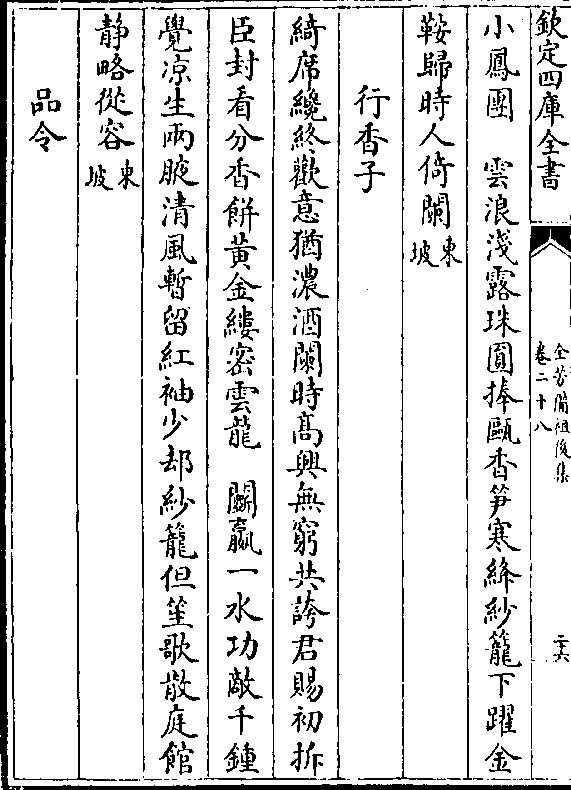 欽定四庫全書
全芳備祖後集
卷二十八
二十六
小鳳團　雲浪淺露珠圓捧甌香笋寒絳紗籠下躍金
鞍歸時人倚闌東坡
行香子
綺席纔終歡意猶濃酒闌時髙興無窮共誇君賜初拆
臣封看分香餅黄金縷密雲龍　鬬贏一水功敵千鍾
覺凉生兩腋清風暫留紅袖少却紗籠但笙歌散庭館
静略從容東坡
品令